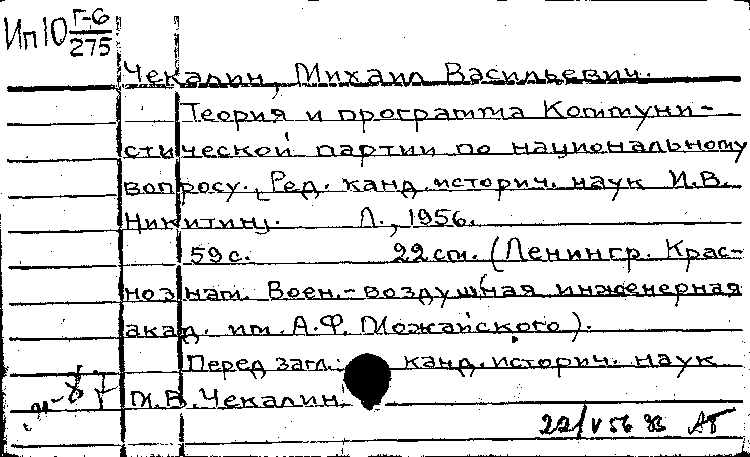 Ип10 Г-6/275
Чекалин, Михаил Васильевич.
Теория и программа Коммуни-
стической партии по национальному
вопросу. [Ред. канд. историч. наук И.В.
Никитин]. Л., 1956.
59 с. 22 см. (Ленингр. Крас-
нознам. Воен.-воздушная инженерная
акад. им. А.Ф. Можайского).
Перед загл.: канд. историч. наук
М.В. Чекалин
22/V 56